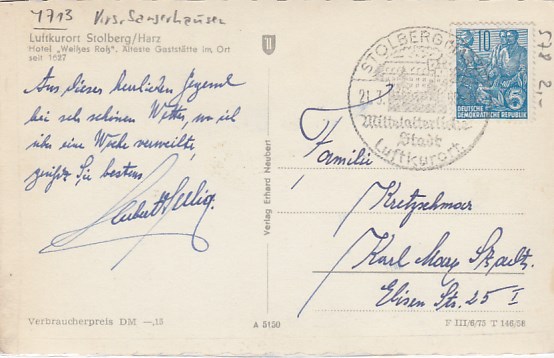 4713 Krs. Sangerhausen
Luftkurort Stolberg/Harz
Hotel „Weißes Roß“, Älteste Gaststätte im Ort
seit 1627
Aus dieser herrlichen Gegend
bei sehr schönen Wetter, wo ich
über eine Woche verweilte,
grüßt Sie bestens
Verbraucherpreis DM —,15
Verlag Erhard Neubert
A 5130
STOLBERG
21.3.
Mittelalterliche
Stadt
Luftkurort
10
5
DEUTSCHE
DEMOKRATISCHE REPUBLIK
578 2.-
Familie
Kretzschmar
Karl Marx Stadt
Elisen Str. 25 I
F III/6/75 T 146/58